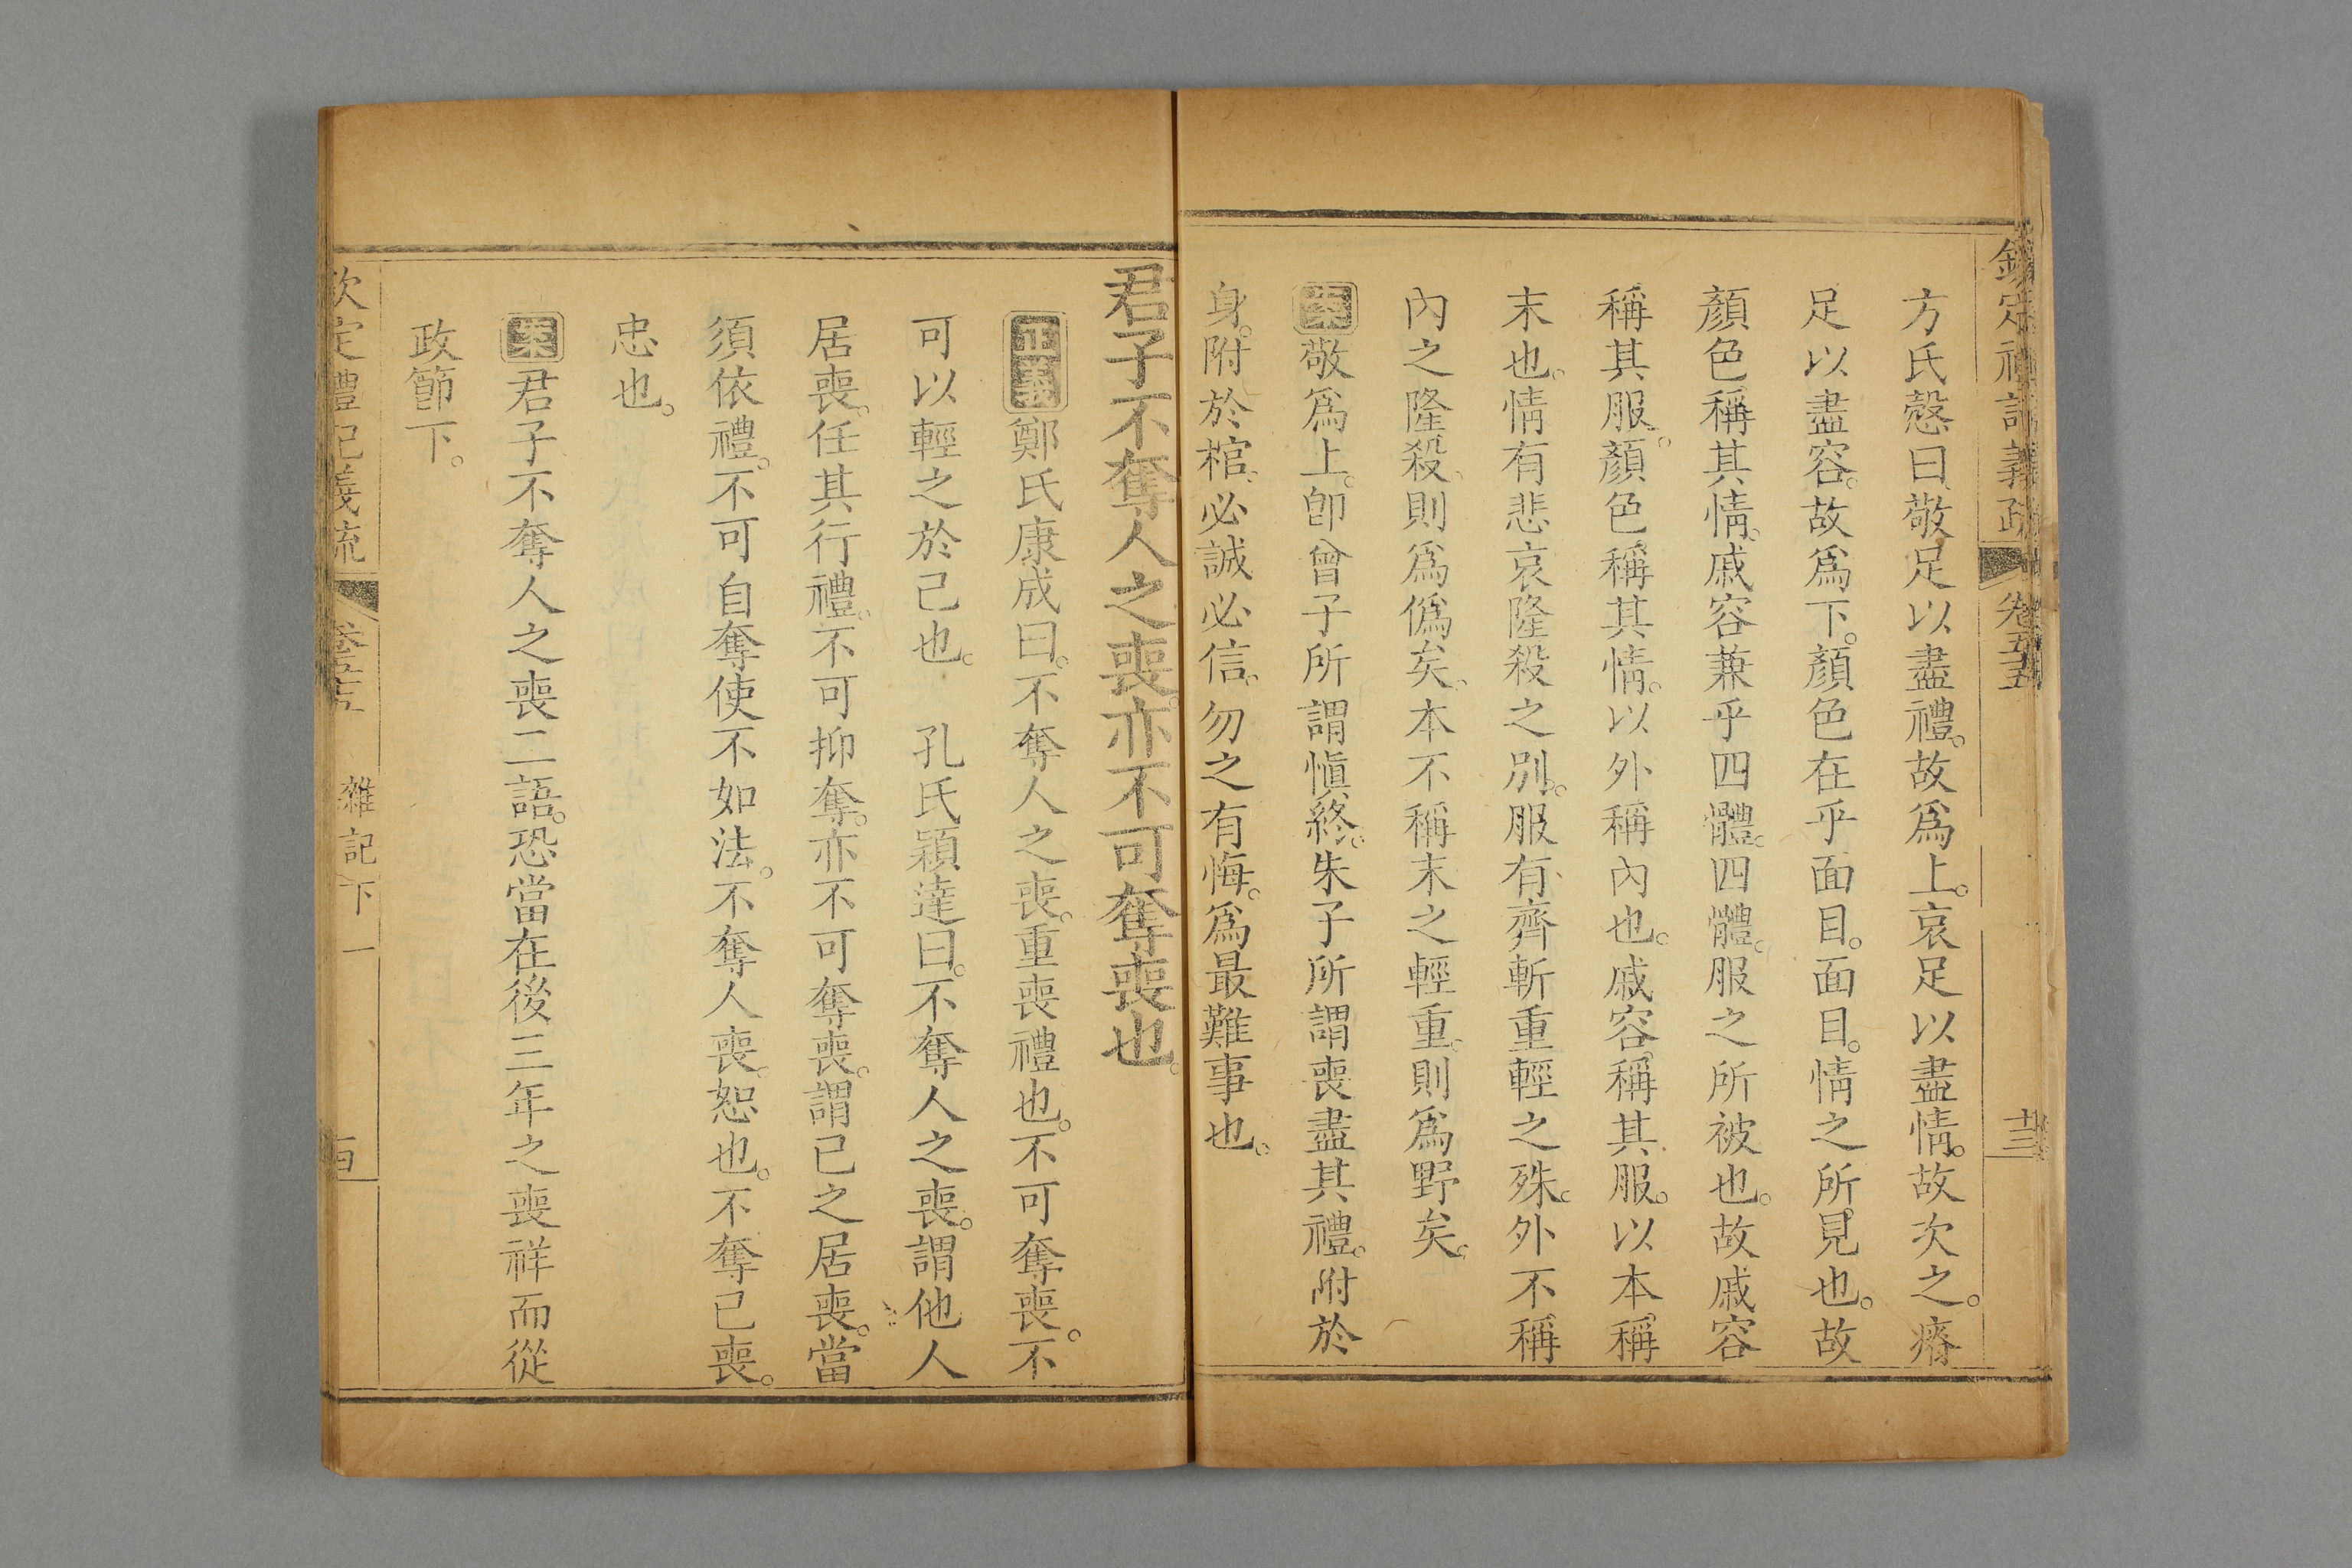 欽定禮記義疏 卷五十五 十三
方氏慤曰敬足以盡禮故爲上哀足以盡情故次之瘠
足以盡容故爲下顏色在乎面目面目情之所見也故
顏色稱其情戚容兼乎四體四體服之所被也故戚容
稱其服顏色稱其情以外稱內也戚容稱其服以本稱
末也情有悲哀隆殺之別服有齊斬重輕之殊外不稱
內之隆殺則爲僞矣本不稱末之輕重則爲野矣
案敬爲上卽曾子所謂愼終朱子所謂喪盡其禮附於
身附於棺必誠必信勿之有悔爲最難事也
君子不奪人之喪亦不可奪喪也
正義鄭氏康成曰不奪人之喪重喪禮也不可奪喪不
可以輕之於己也 孔氏穎達曰不奪人之喪謂他人
居喪任其行禮不可抑奪亦不可奪喪謂己之居喪當
須依禮不可自奪使不如法不奪人喪恕也不奪己喪
忠也
案君子不奪人之喪二語恐當在後三年之喪祥而從
政節下
欽定禮記義疏 卷五十五 雜記下 一